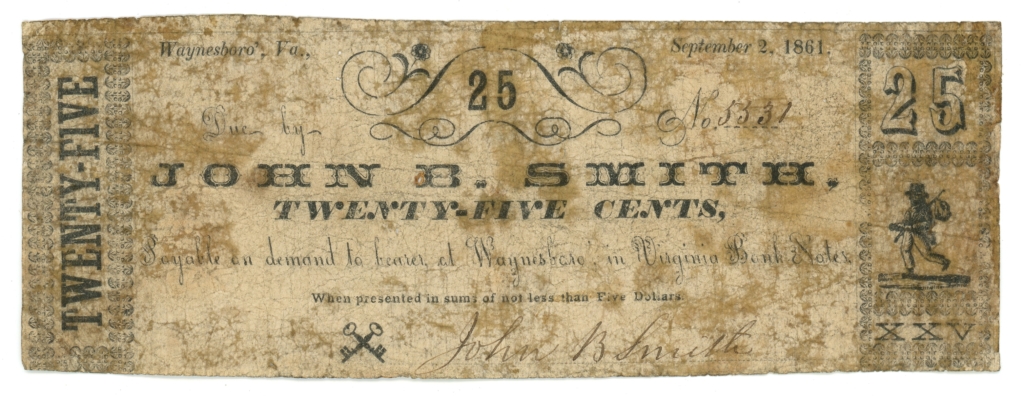 Waynesboro', Va., September 2, 1861.
TWENTY-FIVE
25
25
Due by
No. 5331
JOHN B. SMITH,
TWENTY-FIVE CENTS,
Payable on demand to bearer, at Waynesboro', in Virginia Bank Notes
When presented in sums of not less than Five Dollars.
XXV
John B Smith